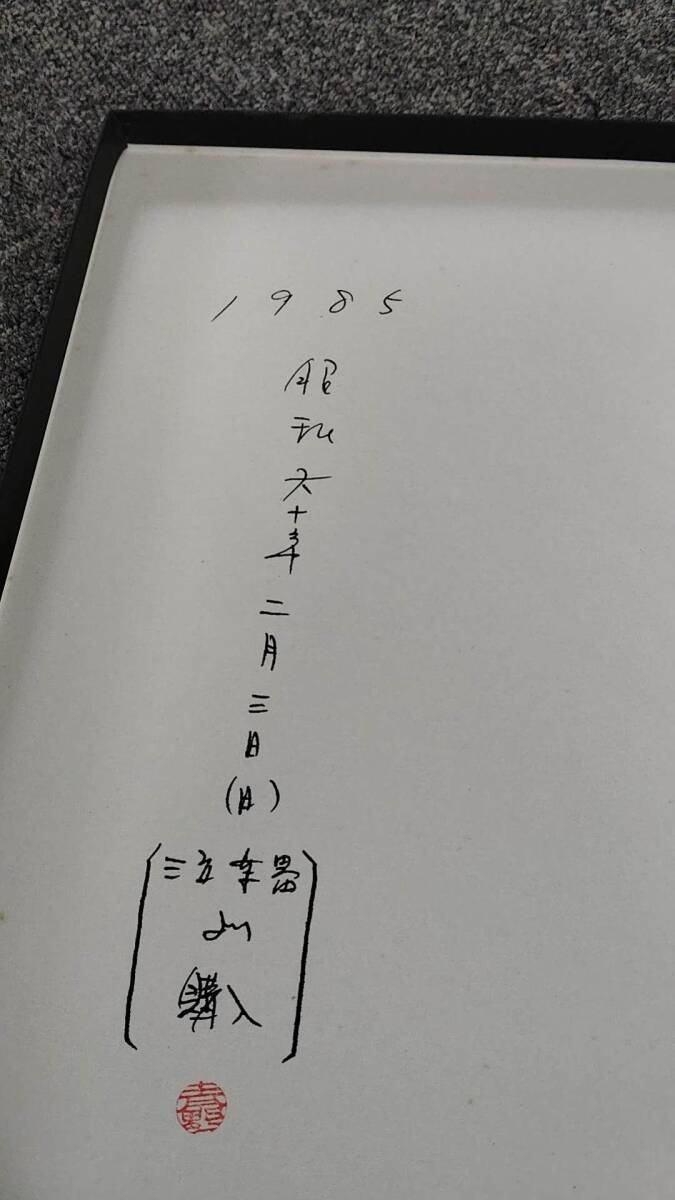 1985
昭和六十年二月三日(日)
三立楽器
より
購入